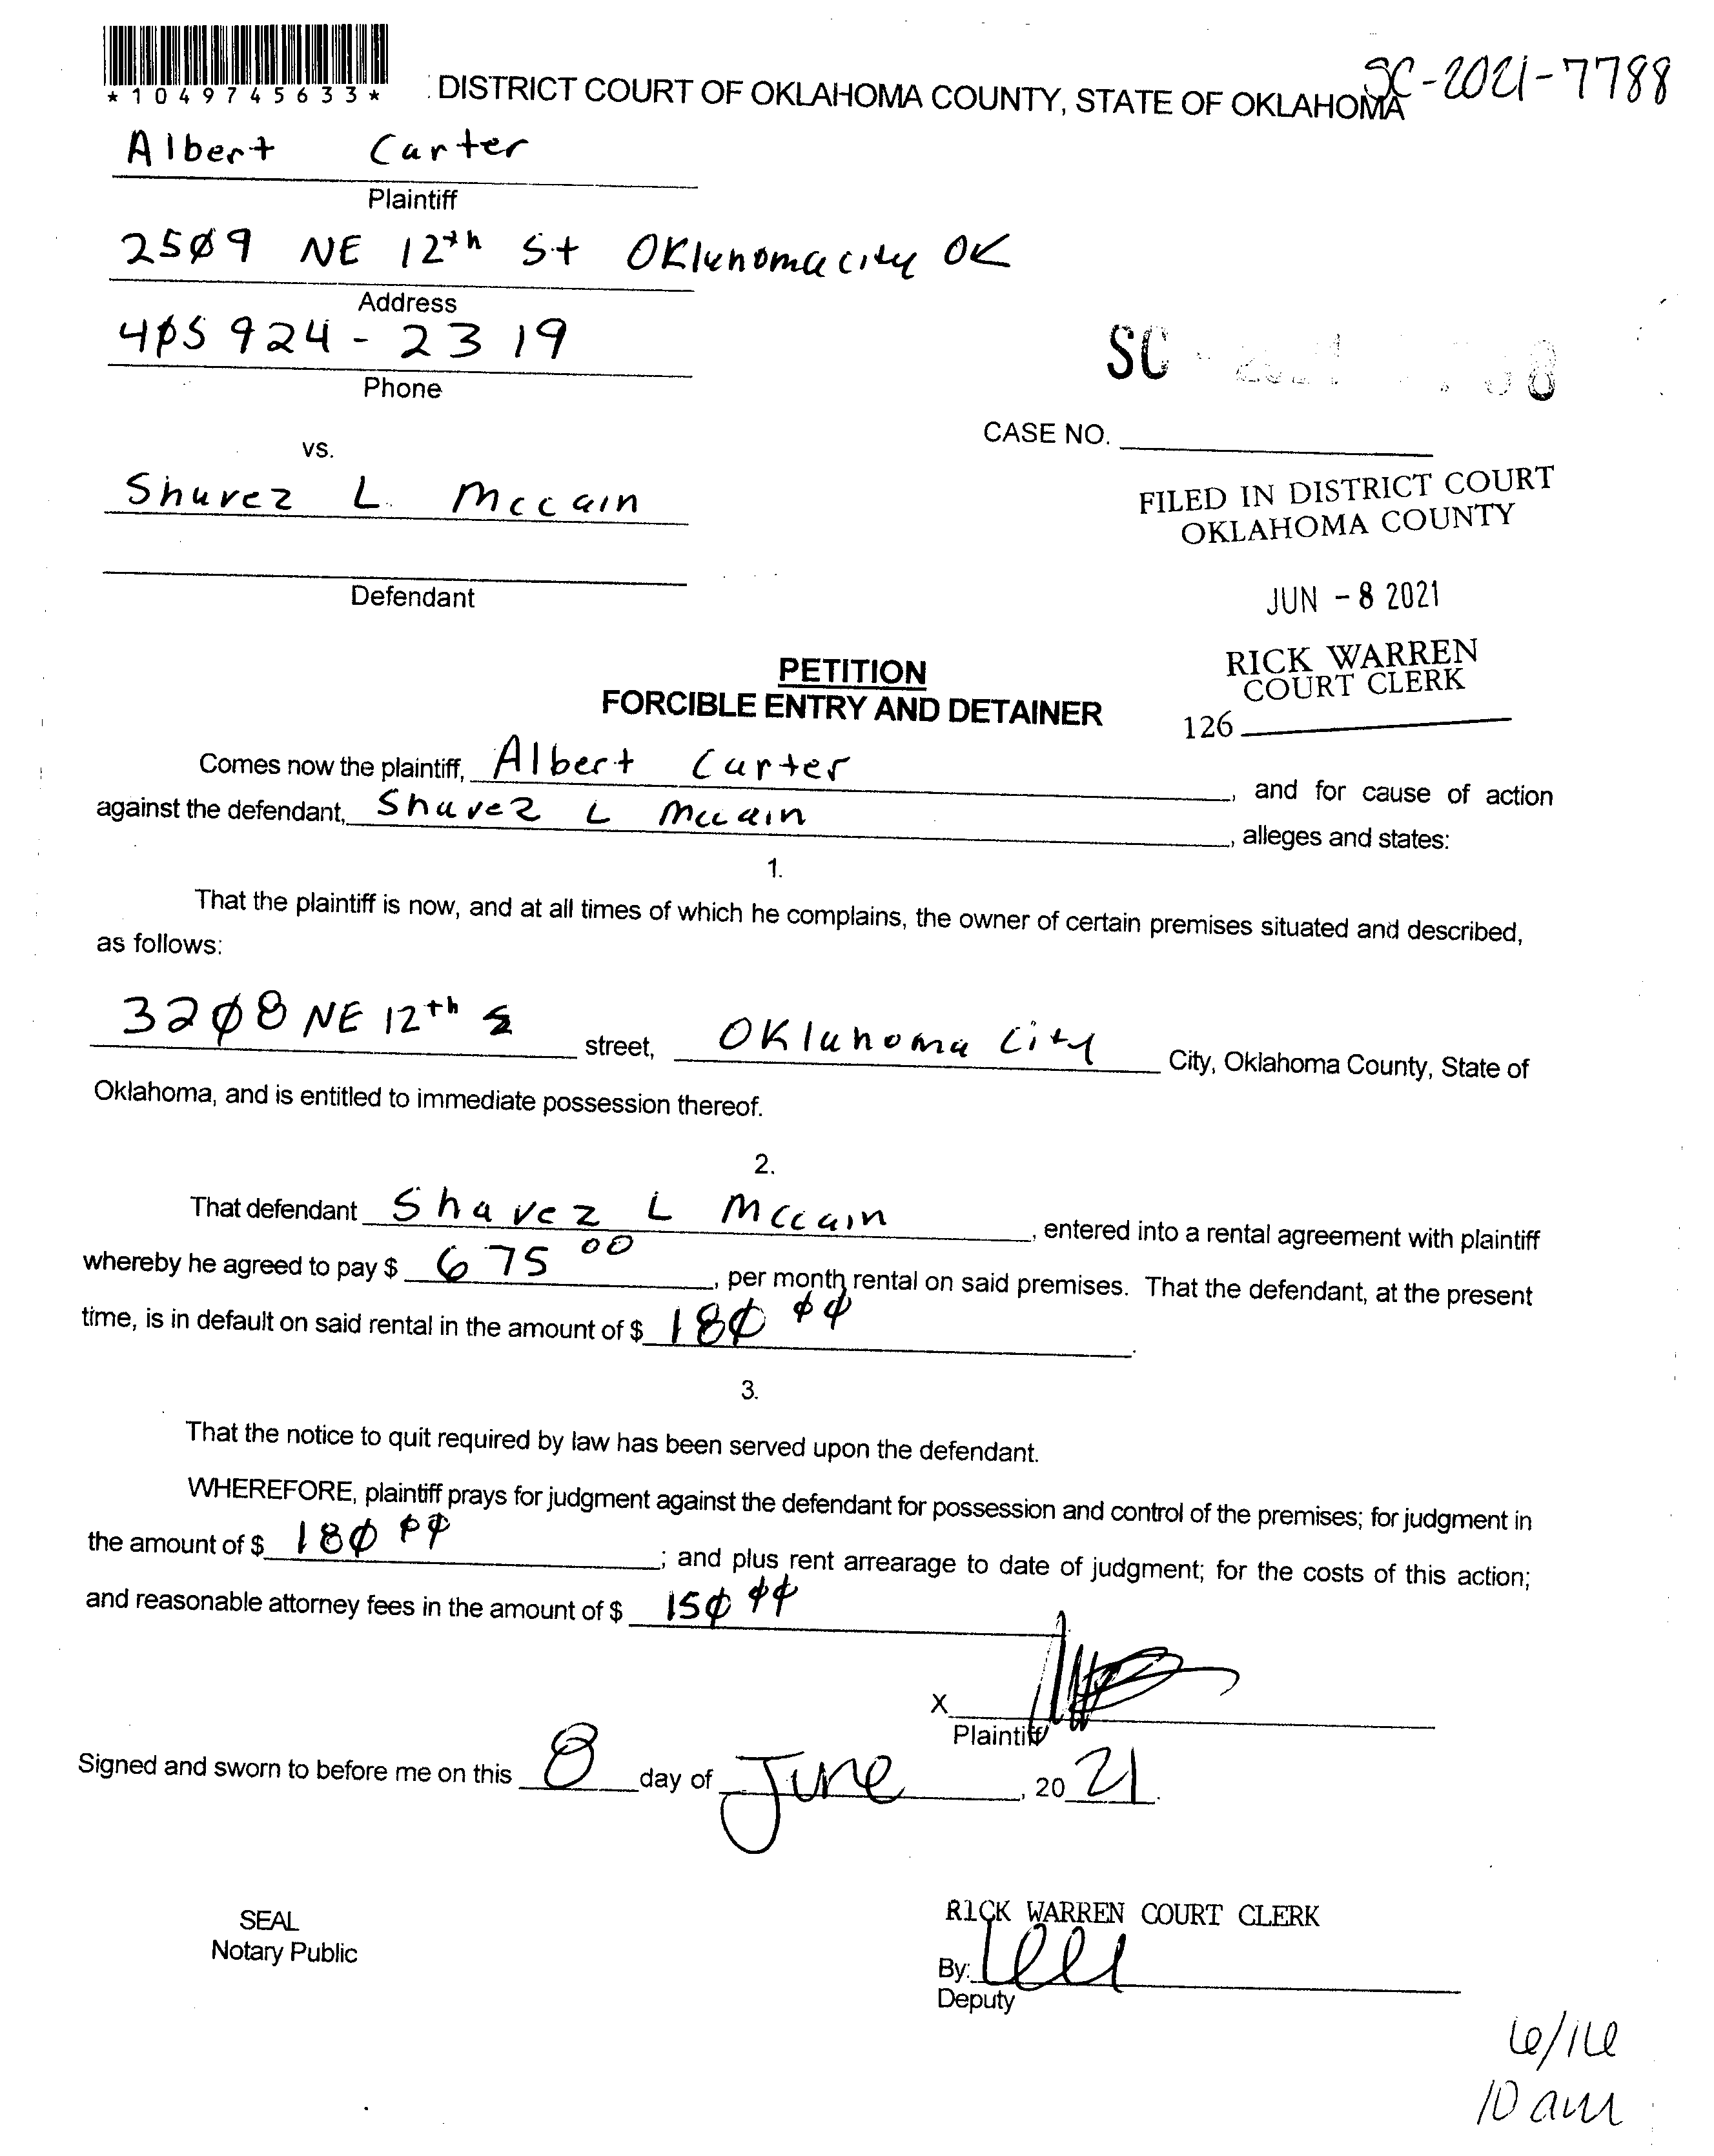 *1049745633*
DISTRICT COURT OF OKLAHOMA COUNTY, STATE OF OKLAHOMA
SC-2021-7788
Albert Carter
Plaintiff
2509 NE 12th St Oklahoma city OK
Address
405 924-2319
Phone
SC
CASE NO.
vs.
Shavez L. Mccain
FILED IN DISTRICT COURT
OKLAHOMA COUNTY
Defendant
JUN - 8 2021
RICK WARREN
COURT CLERK
126
PETITION
FORCIBLE ENTRY AND DETAINER
Comes now the plaintiff, Albert Carter, and for cause of action
against the defendant, Shavez L Mccain, alleges and states:
1.
That the plaintiff is now, and at all times of which he complains, the owner of certain premises situated and described,
as follows:
3208 NE 12th street, Oklahoma City City, Oklahoma County, State of
Oklahoma, and is entitled to immediate possession thereof.
2.
That defendant Shavez L Mccain, entered into a rental agreement with plaintiff
whereby he agreed to pay $ 675 00, per month rental on said premises. That the defendant, at the present
time, is in default on said rental in the amount of $ 180 00.
3.
That the notice to quit required by law has been served upon the defendant.
WHEREFORE, plaintiff prays for judgment against the defendant for possession and control of the premises; for judgment in
the amount of $ 180 00; and plus rent arrearage to date of judgment; for the costs of this action;
and reasonable attorney fees in the amount of $ 150 00
X
Plaintiff
Signed and sworn to before me on this 8 day of June, 20 21.
SEAL
Notary Public
RICK WARREN COURT CLERK
By:
Deputy
6/16
10 am